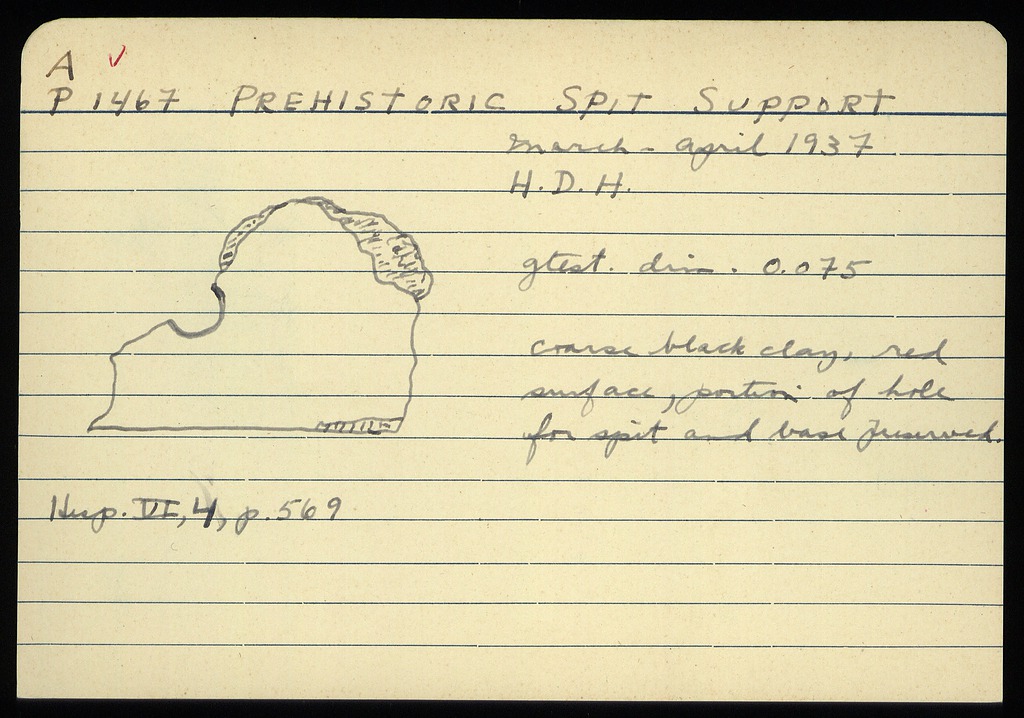 A ✓
P 1467 PREHISTORIC SPIT SUPPORT
March - April 1937
H. D. H.
gtest. dim. 0.075
coarse black clay, red
surface, portion of hole
for spit and base preserved.
Hesp. VI, 4, p. 569